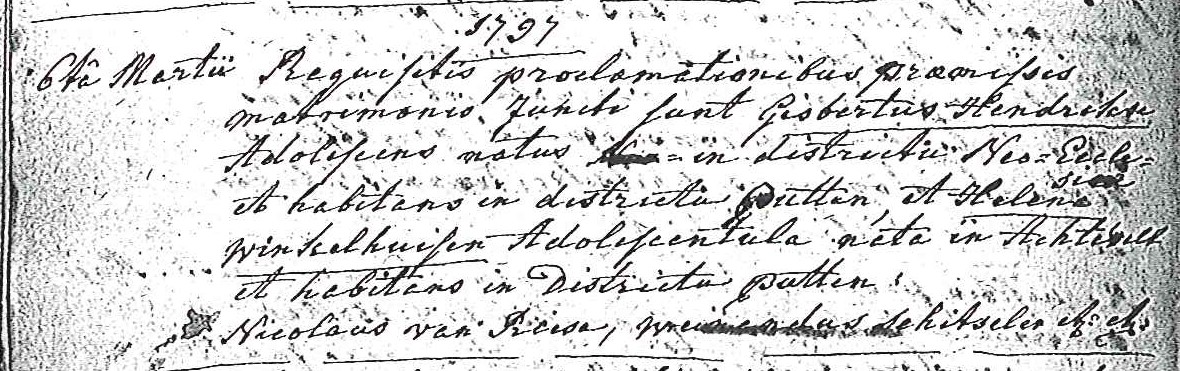 1797
6tâ Martii Requisitis proclamationibus præmissis
matrimonio Juncti sunt Gisbertus Hendrikse
Adolescens natus in districtu Neo=Eccle=
siæ
et habitans in districtu Putten, et Helena
winkelhuisen Adolescentula nata in Achtevelt
et habitans in Districtu putten:
Nicolaus van Reese, schitseler et: et: